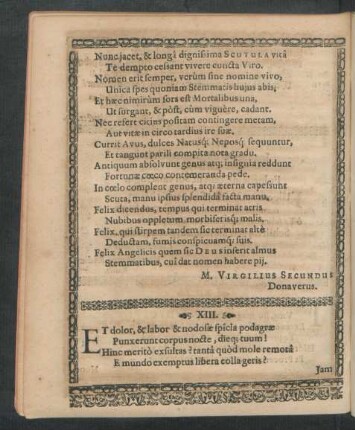 Nunc jacet, & longè dignissima SCUTULA vitâ
Te dempto cessant vivere cuncta Viro.
Nomen erit semper, verùm sine nomine vivo,
Unica spes quoniam Stemmatis hujus abis;
Et hæc nimirùm sors est Mortalibus una,
Ut surgant, & pòst, cùm viguêre, cadant.
Nec refert citiùs positam contingere metam,
Aut vitæ in circo tardius ire suæ.
Currit Avus, dulces Natusq; Neposq; sequuntur,
Et tangunt parili compita nota gradu.
Antiquum absolvunt genus atq; insignia reddunt
Fortunæ cæco contemeranda pede.
In cœlo complent genus, atq; æterna capessunt
Scuta, manu ipsius splendida facta manu.
Felix dicendus, tempus qui terminat atris
Nubibus oppletum, morbiferisq; malis,
Felix, qui stirpem tandem sic terminat altè
Deductam, fumis conspicuamq; suis.
Felix Angelicis quem sic DEUS inserit almus
Stemmatibus, cui dat nomen habere pij.
M. VIRGILIUS SECUNDUS
Donaverus.
XIII.
ET dolor, & labor & nodosæ spicla podagræ
Punxerunt corpus nocte, dieq; tuum!
Hinc meritò exsultas? tantâ quòd mole remotâ
E mundo exemptus libera colla geris?
Jam